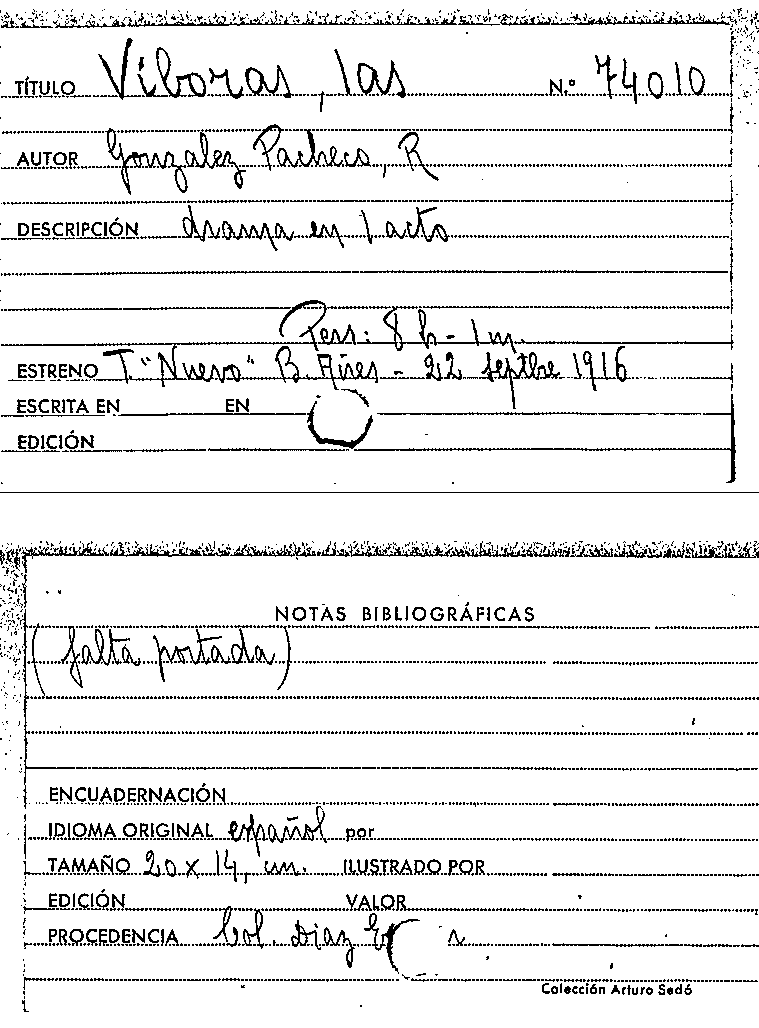 TÍTULO Víboras, las N.º 74010
AUTOR Gonzalez Pacheco, R
DESCRIPCIÓN drama en 1 acto
Pers: 8 h - 1 m.
ESTRENO T. "Nuevo" B. Aires - 22 septbre 1916
ESCRITA EN EN
EDICIÓN
NOTAS BIBLIOGRÁFICAS
(falta portada)
ENCUADERNACIÓN
IDIOMA ORIGINAL español por
TAMAÑO 20 x 14, cm. ILUSTRADO POR
EDICIÓN VALOR
PROCEDENCIA Col. Diaz
Colección Arturo Sedó